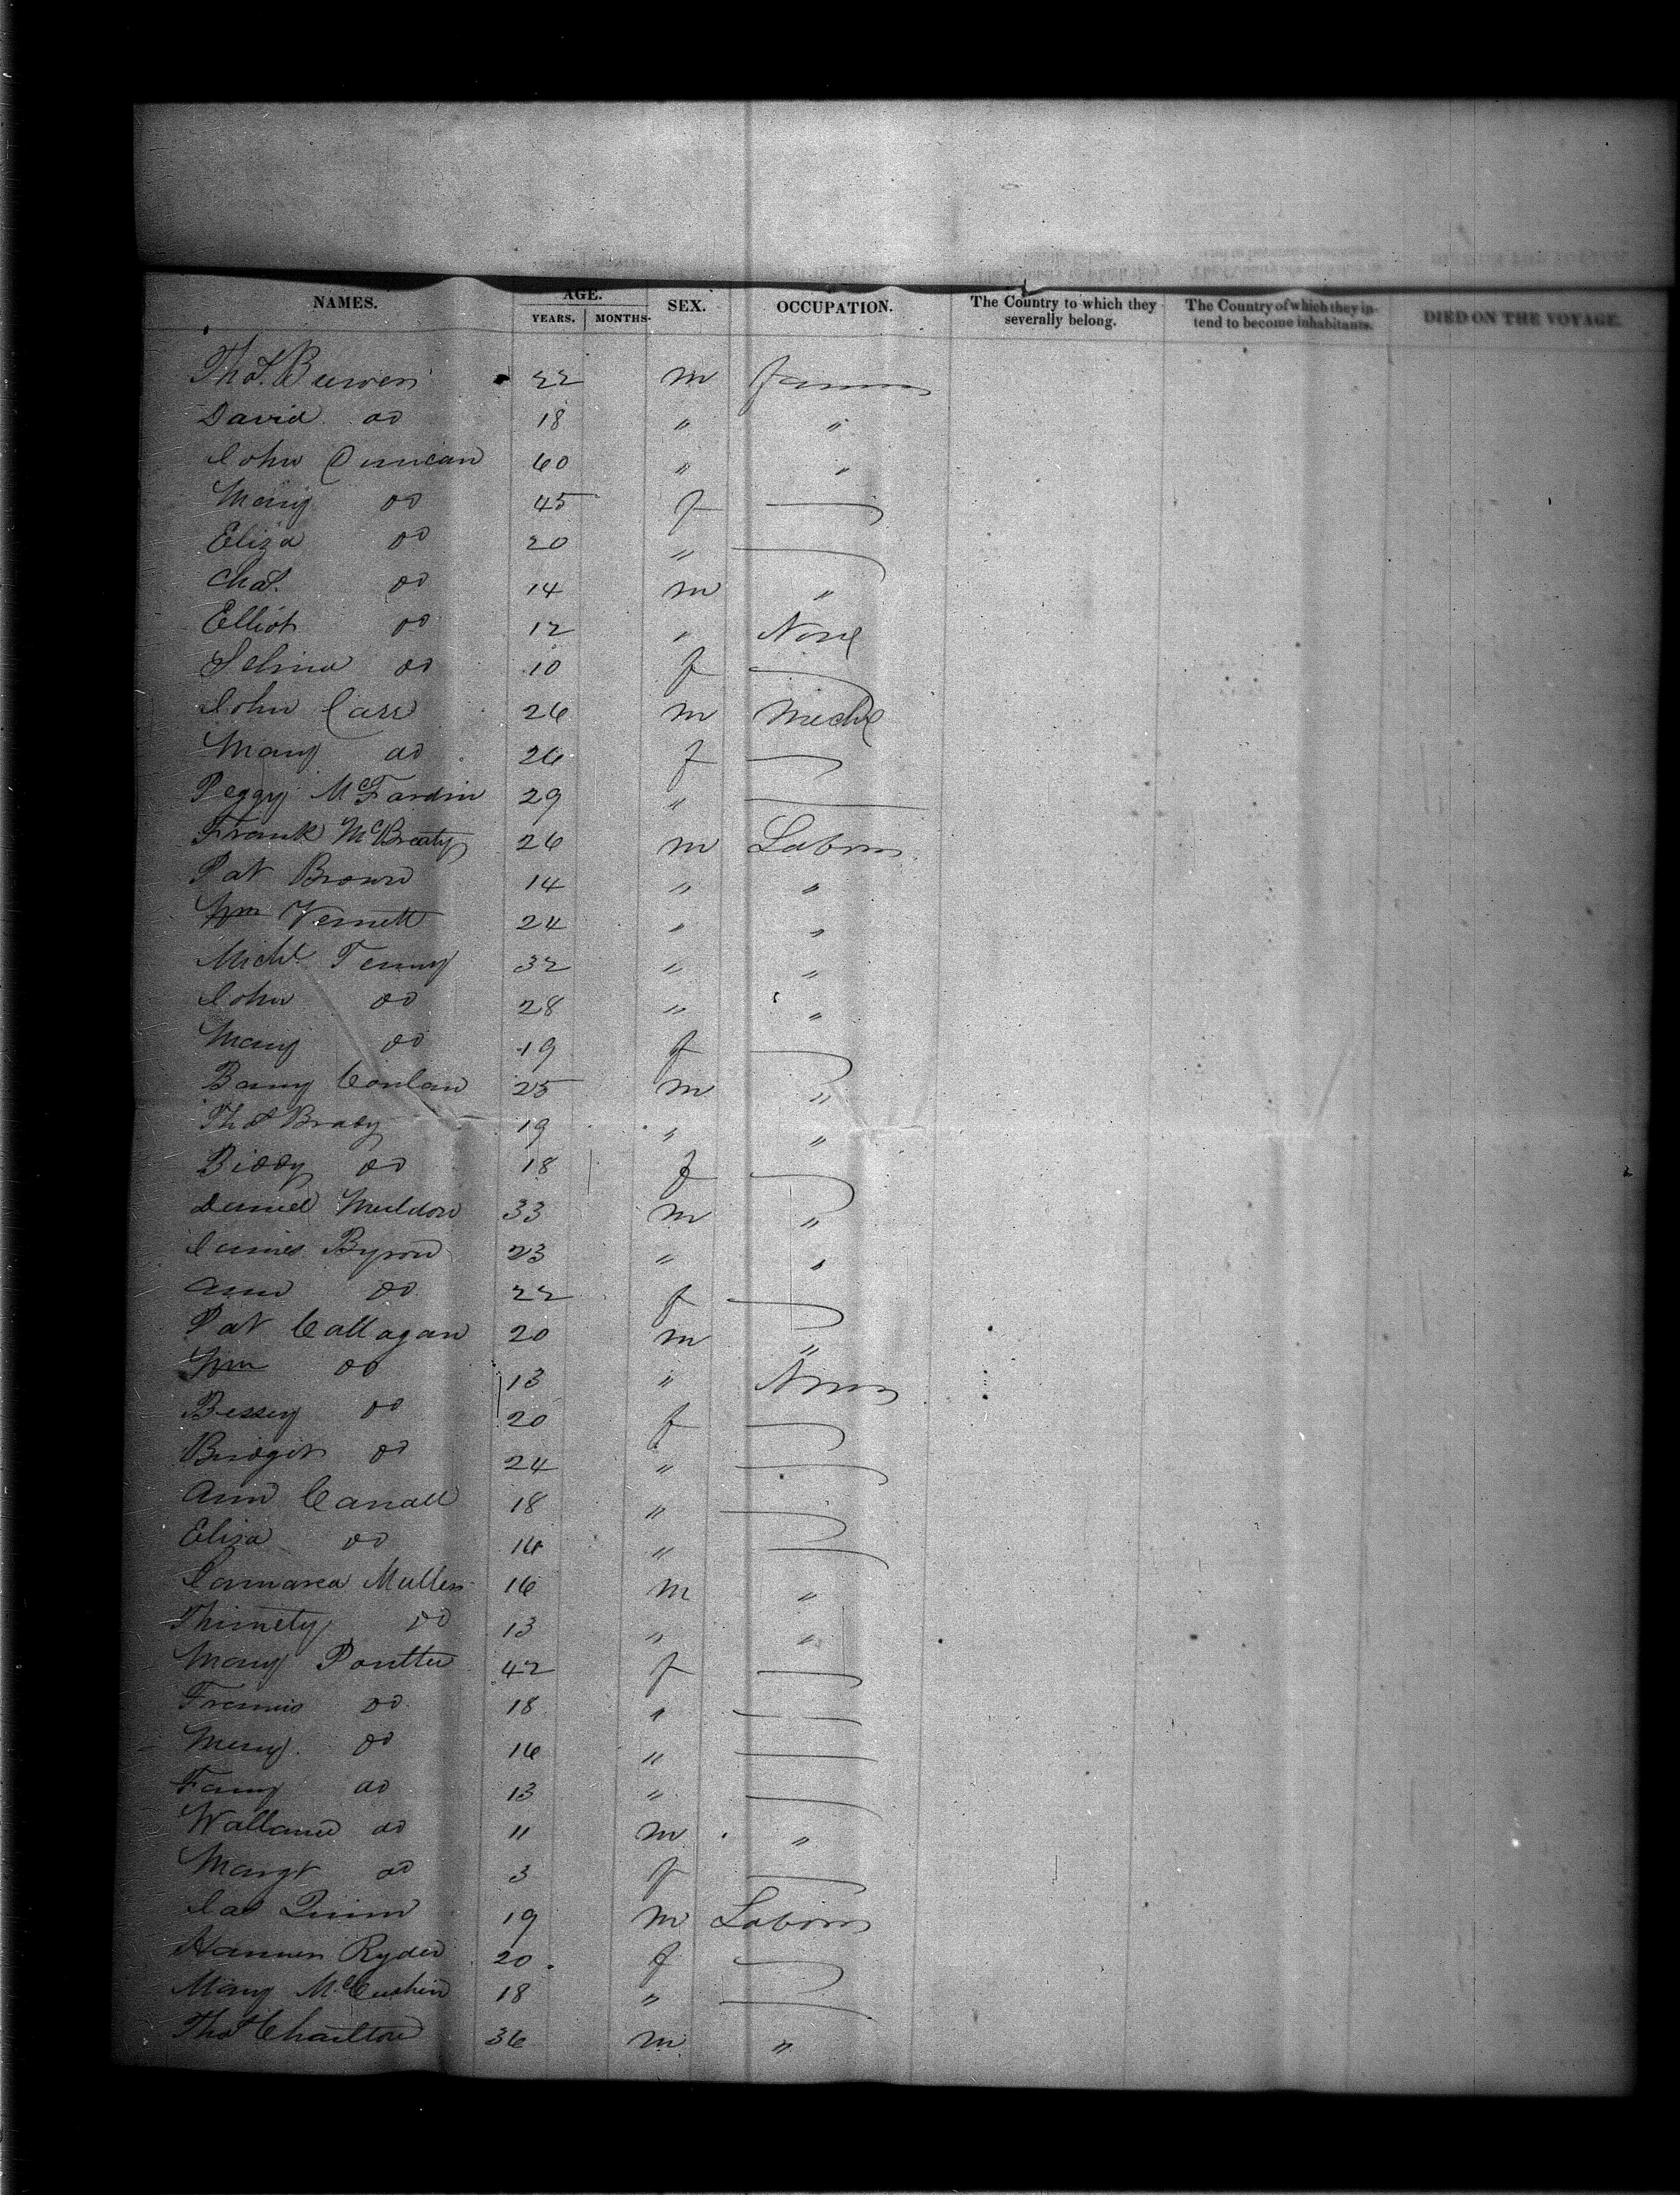 NAMES. AGE. YEARS. MONTHS. SEX. OCCUPATION. The Country to which they severally belong. The Country of which they intend to become inhabitants. DIED ON THE VOYAGE.
Thos. 22 m Farmer
David do 18 " "
John Duncan 60 " "
Mary do 45 f —
Eliza do 20 " —
Chas. do 14 m "
Elliot do 12 " None
Selina do 10 f —
John Carr 26 m Mechc
Mary do 26 f —
Peggy 29 " —
Frank McBrearty 26 m Labourer
Pat Brown 14 " "
Wm Vernett 24 " "
Michl 32 " "
John do 28 " "
Mary do 19 f —
Barny Conlan 25 m "
Thos Brady 19 " "
Biddy do 18 f —
Daniel Muldon 33 m "
James Byron 23 " "
Ann do 22 f —
Pat Callagan 20 m "
Wm do 13 " None
Bessey do 20 f —
Bridget do 24 " —
Ann Carrall 18 " —
Eliza do 16 " —
Mullen 16 m "
Thimety do 13 " "
Mary 42 f —
Francis do 18 " —
Mary do 16 " —
Fanny do 13 " —
do 11 m "
Margt do 3 f —
Jas Quinn 19 m Labourer
Ryder 20 f —
Mary 18 " —
Thos Charlton 36 m "